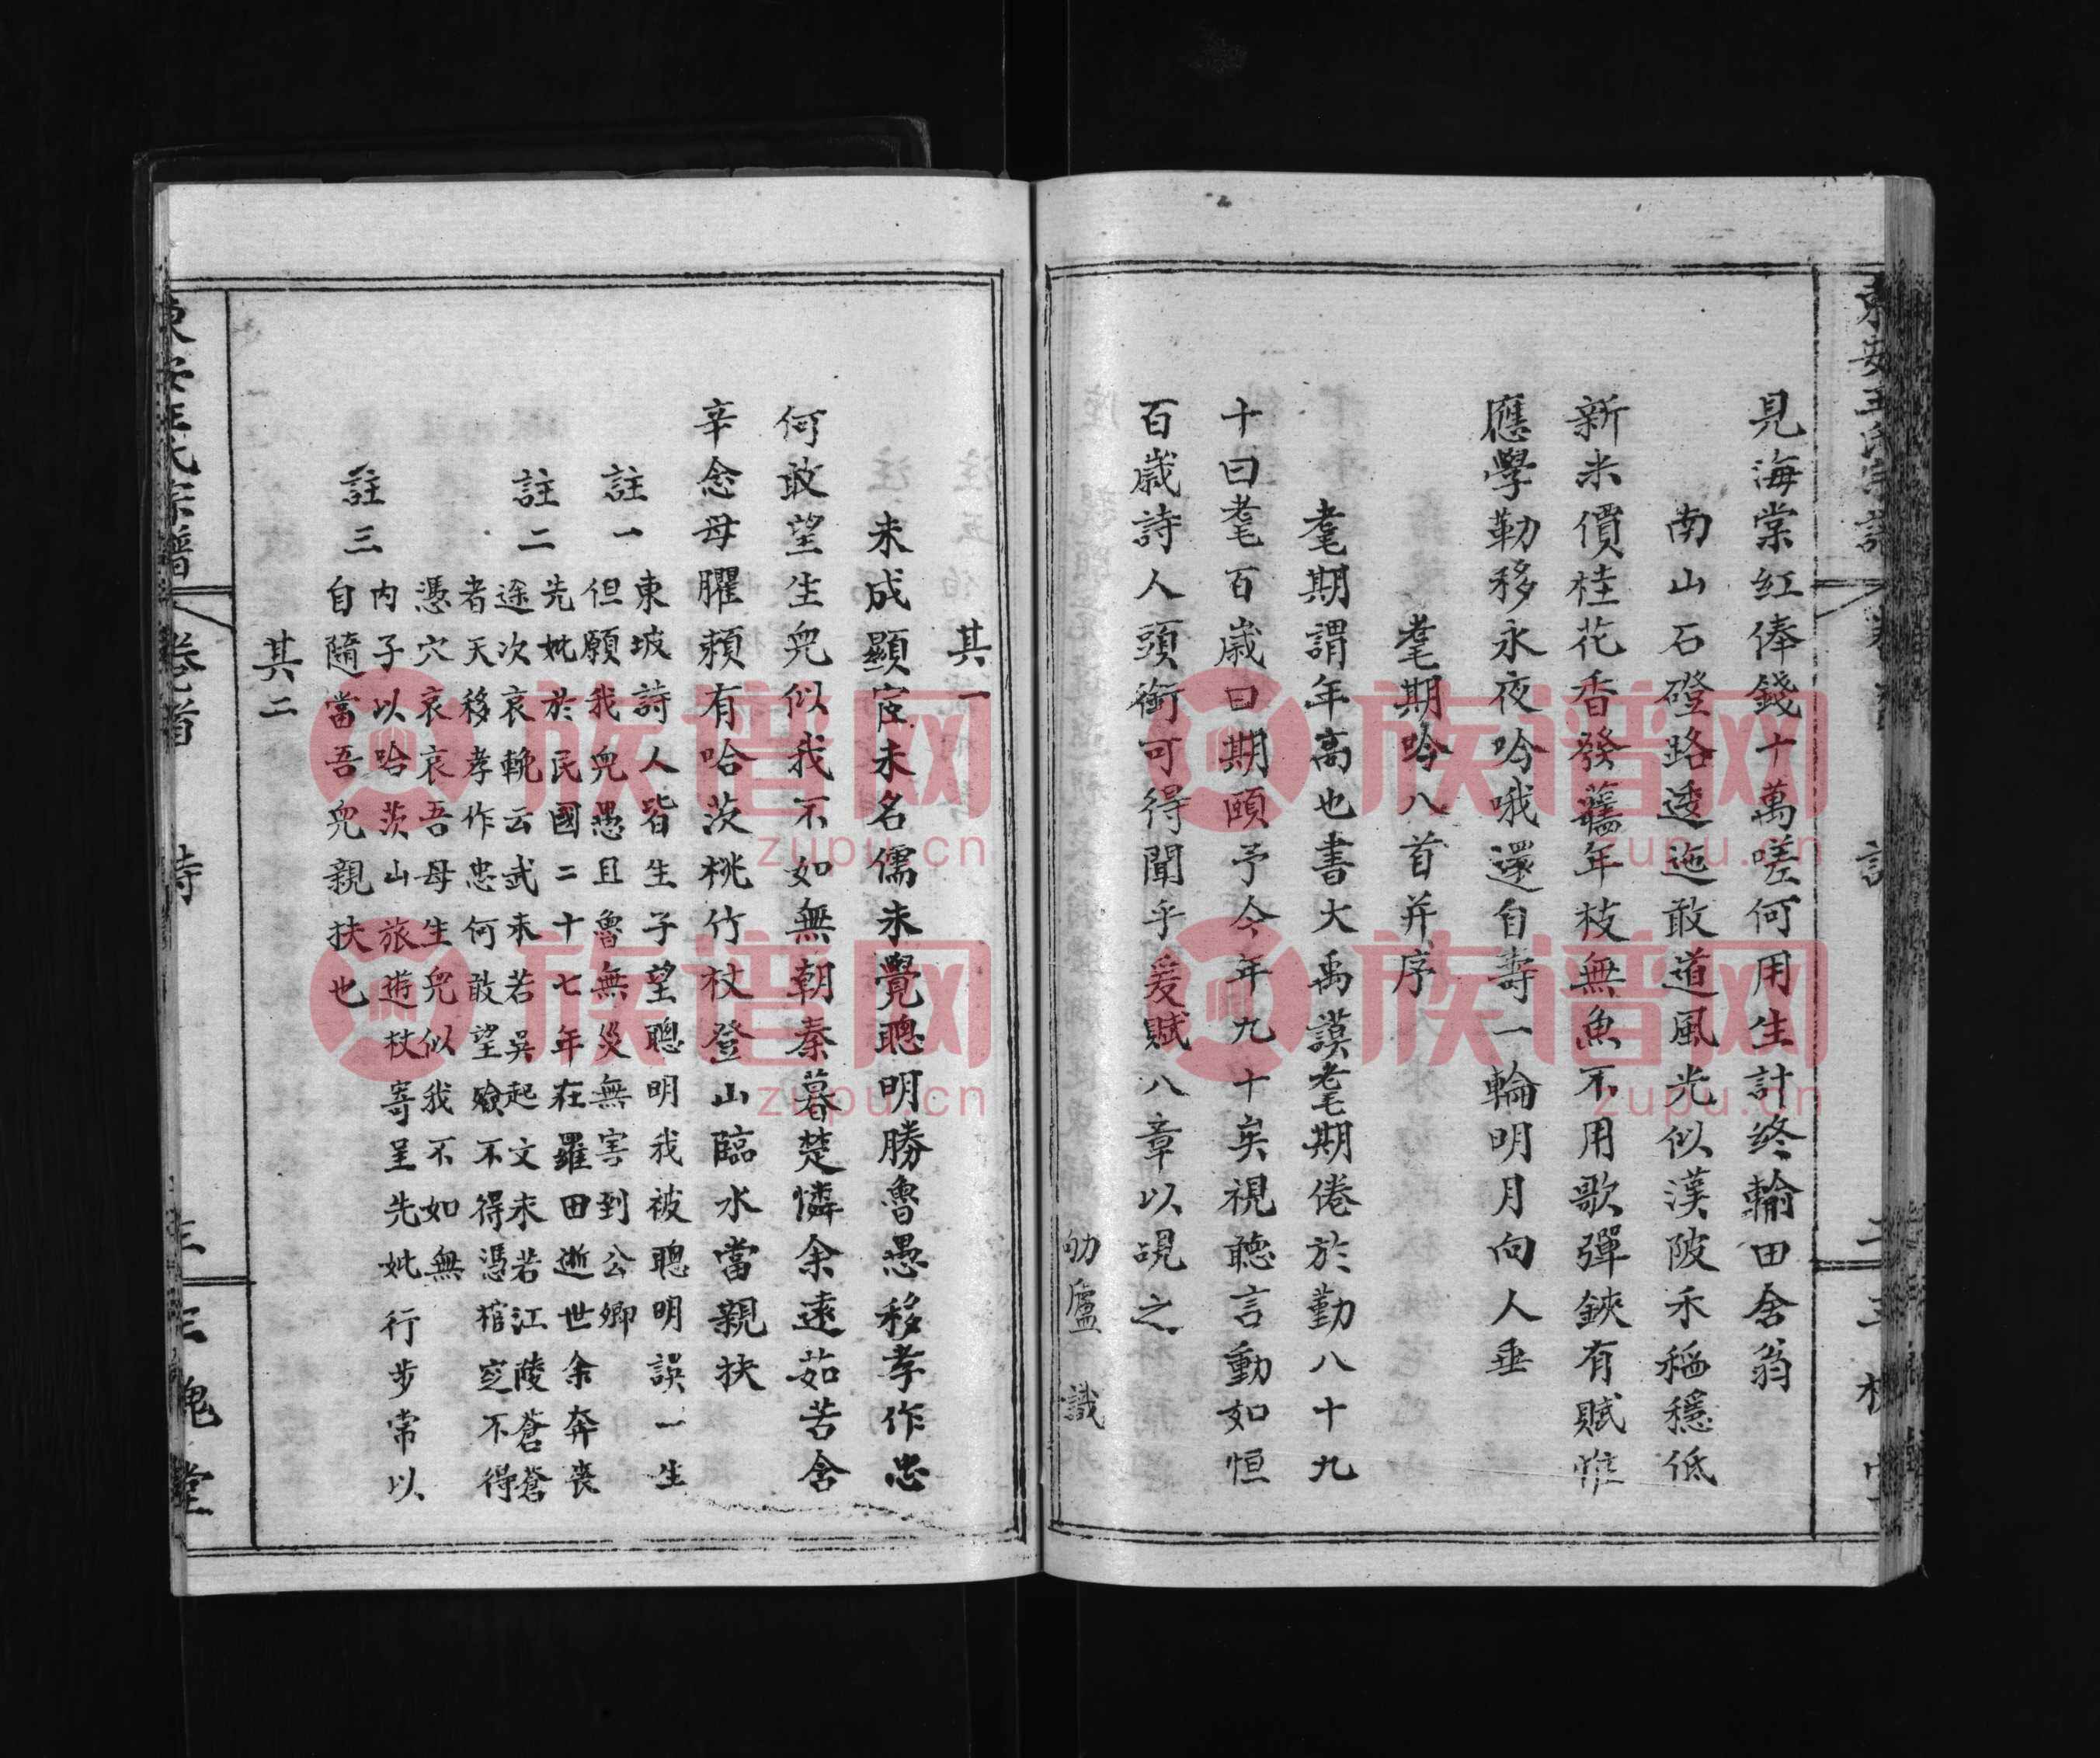 見海棠紅俸錢十萬嗟何用生計終輸田舍翁
南山石磴路逶迤敢道風光似漢陂禾稲穩低
新米價桂花香發舊年枝無魚不用歌彈鋏有賦惟
應學勒移永夜吟哦還自壽一輪明月向人垂
耄期吟八首并序
耄期謂年高也書大禹謨耄期倦於勤八十九
十曰耄百歲曰期頤予今年九十矣視聽言動如恒
百歲詩人頭銜可得聞乎爰賦八章以覘之
劬廬識
其一
未成顯宦未名儒未覺聰明勝魯愚移孝作忠
何敢望生兒似我不如無朝秦暮楚憐余遠茹苦含
辛念母臞賴有哈茨桃竹杖登山臨水當親扶
註一
東坡詩人皆生子望聰明我被聰明誤一生
但願我兒愚且魯無災無害到公卿
註二
先妣於民國二十七年在羅田逝世余奔喪
途次哀輓云武未若吳起文未若江陵蒼蒼
者天移孝作忠何敢望殮不得憑棺窆不得
憑穴哀哀吾母生兒似我不如無
註三
內子以哈茨山旅遊杖寄呈先妣行步常以
自隨當吾兒親扶也
其二
東安王氏宗譜
卷首
詩
三槐堂
族谱网
zupu.cn
族谱网
zupu.cn
族谱网
zupu.cn
族谱网
zupu.cn